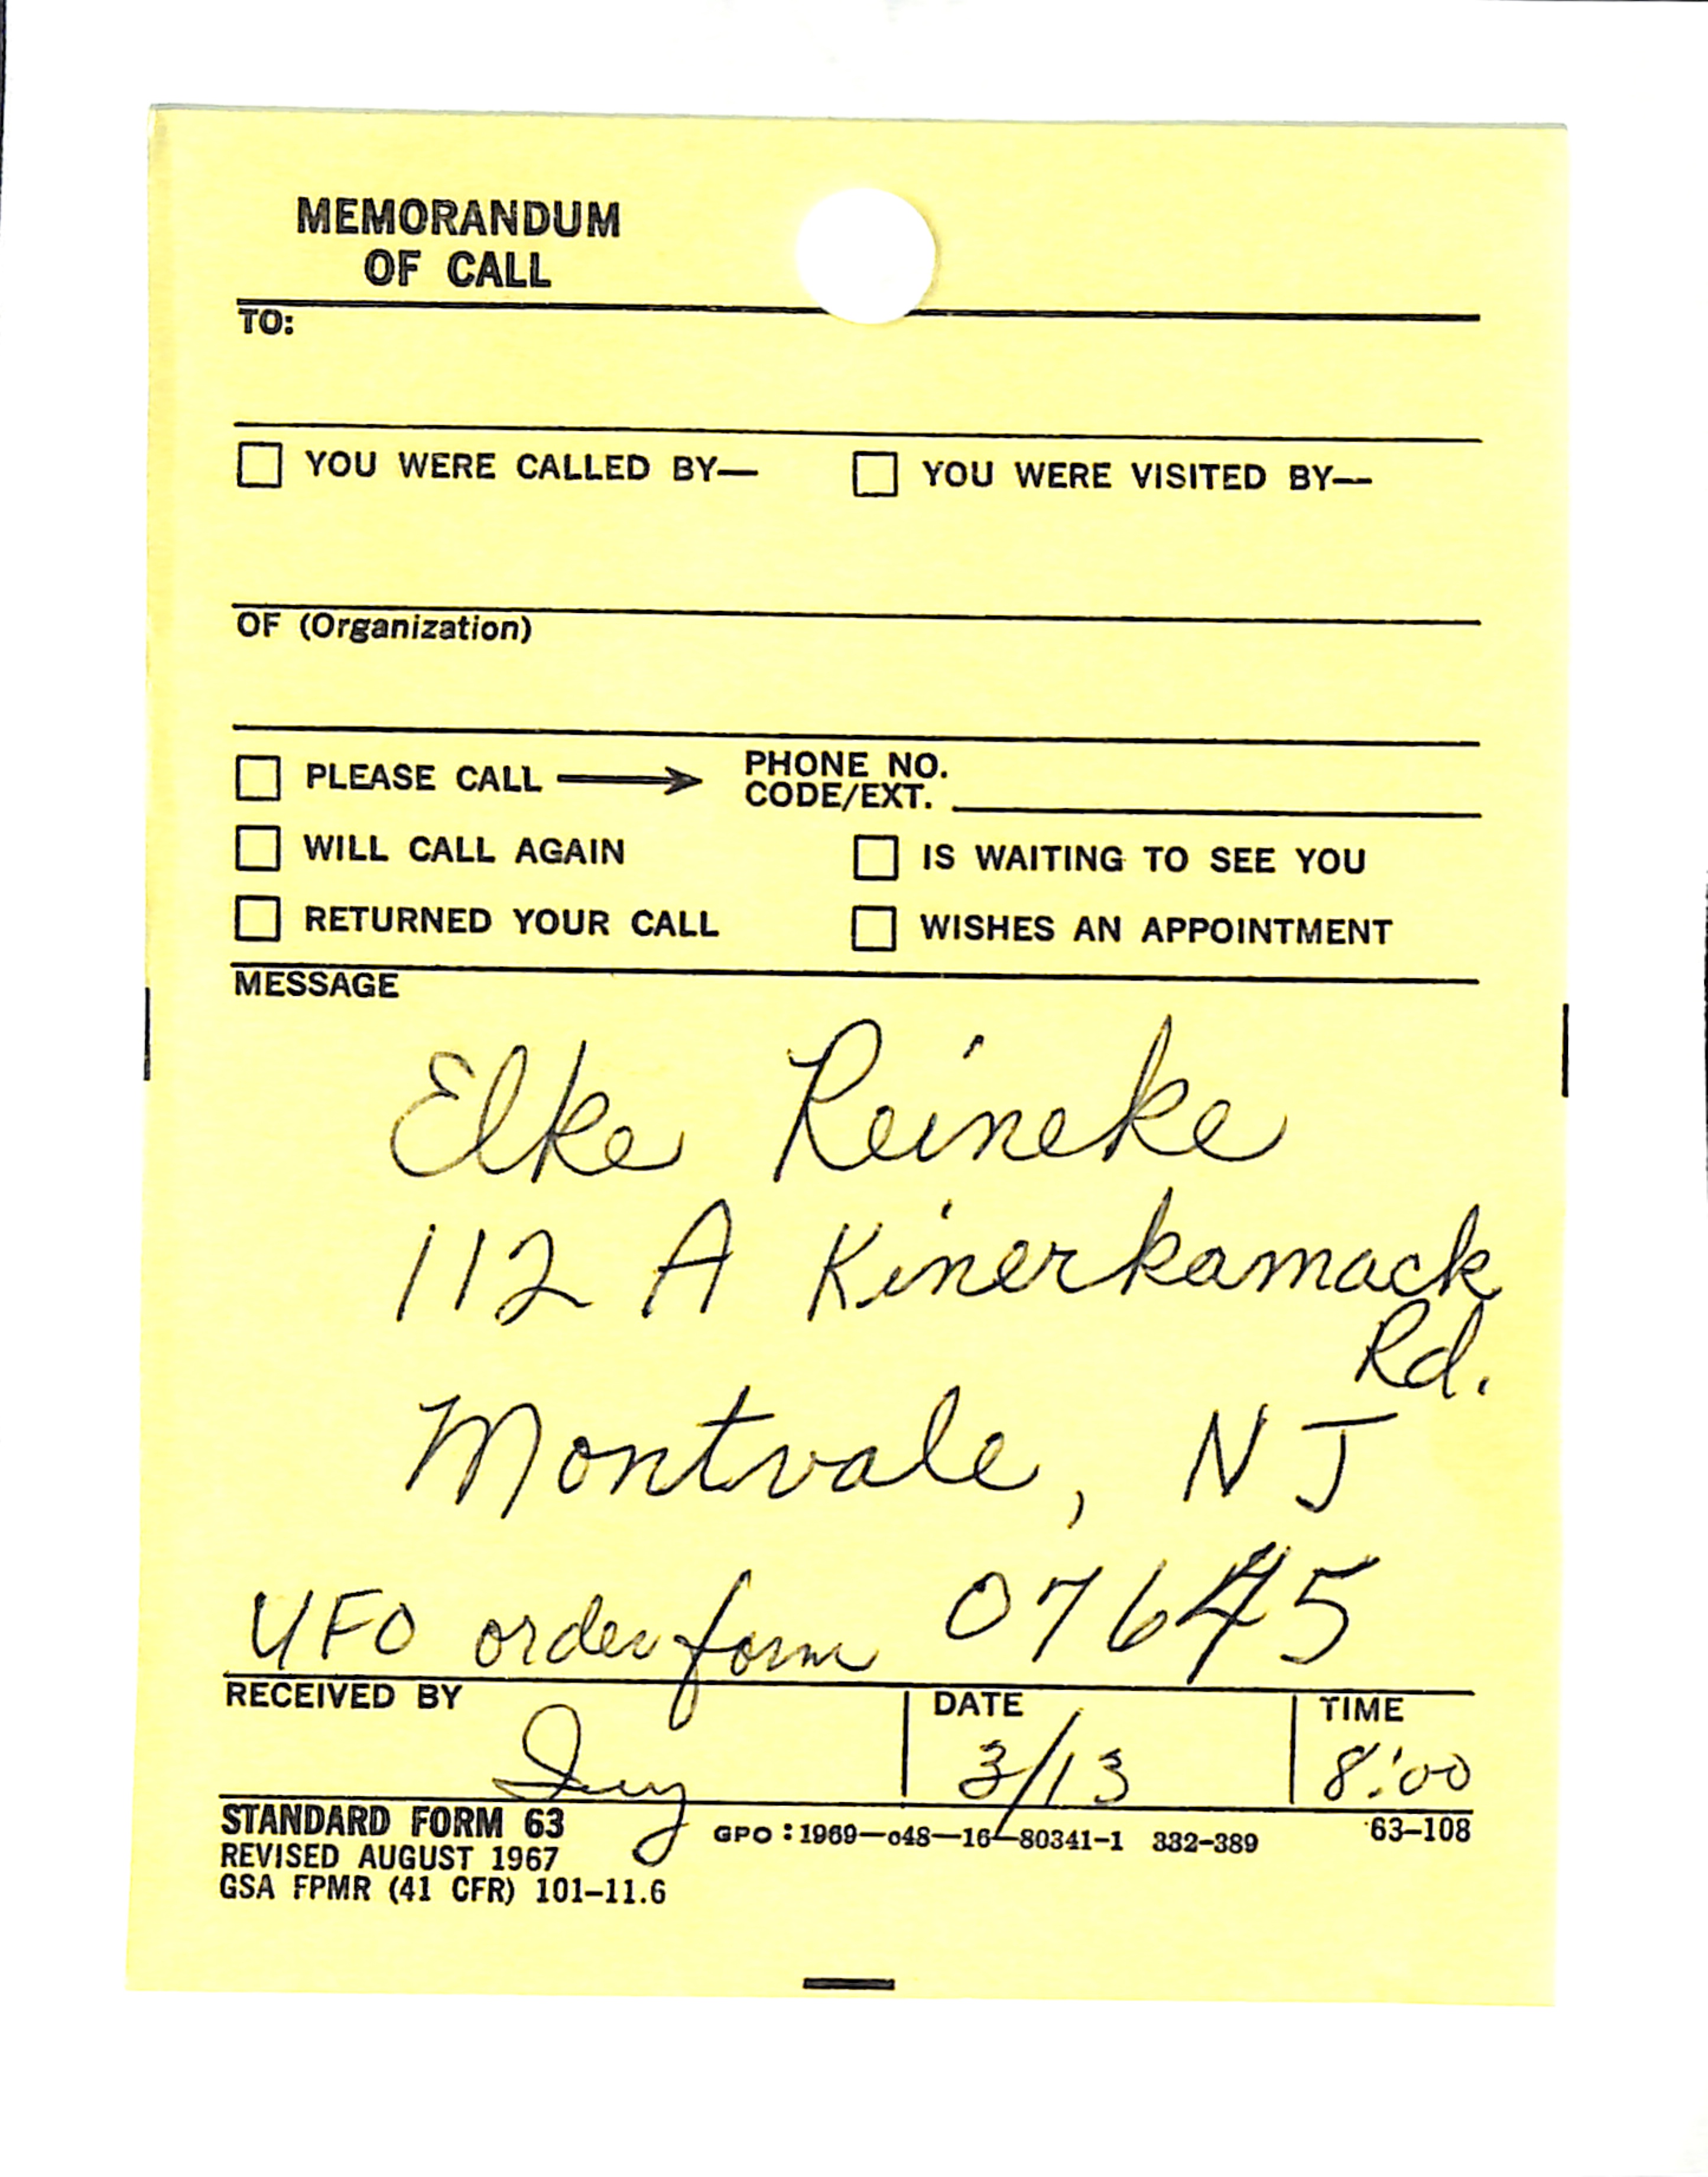 MEMORANDUM
OF CALL
TO:
YOU WERE CALLED BY— YOU WERE VISITED BY—
OF (Organization)
PLEASE CALL → PHONE NO.
CODE/EXT.
WILL CALL AGAIN IS WAITING TO SEE YOU
RETURNED YOUR CALL WISHES AN APPOINTMENT
MESSAGE
Elke Reineke
112 A Kinerkamack
Rd.
Montvale, NJ
UFO order form 07645
RECEIVED BY DATE TIME
3/13 8:00
STANDARD FORM 63
REVISED AUGUST 1967
GSA FPMR (41 CFR) 101–11.6
GPO : 1969—o48—16—80341-1 332-389 63–108